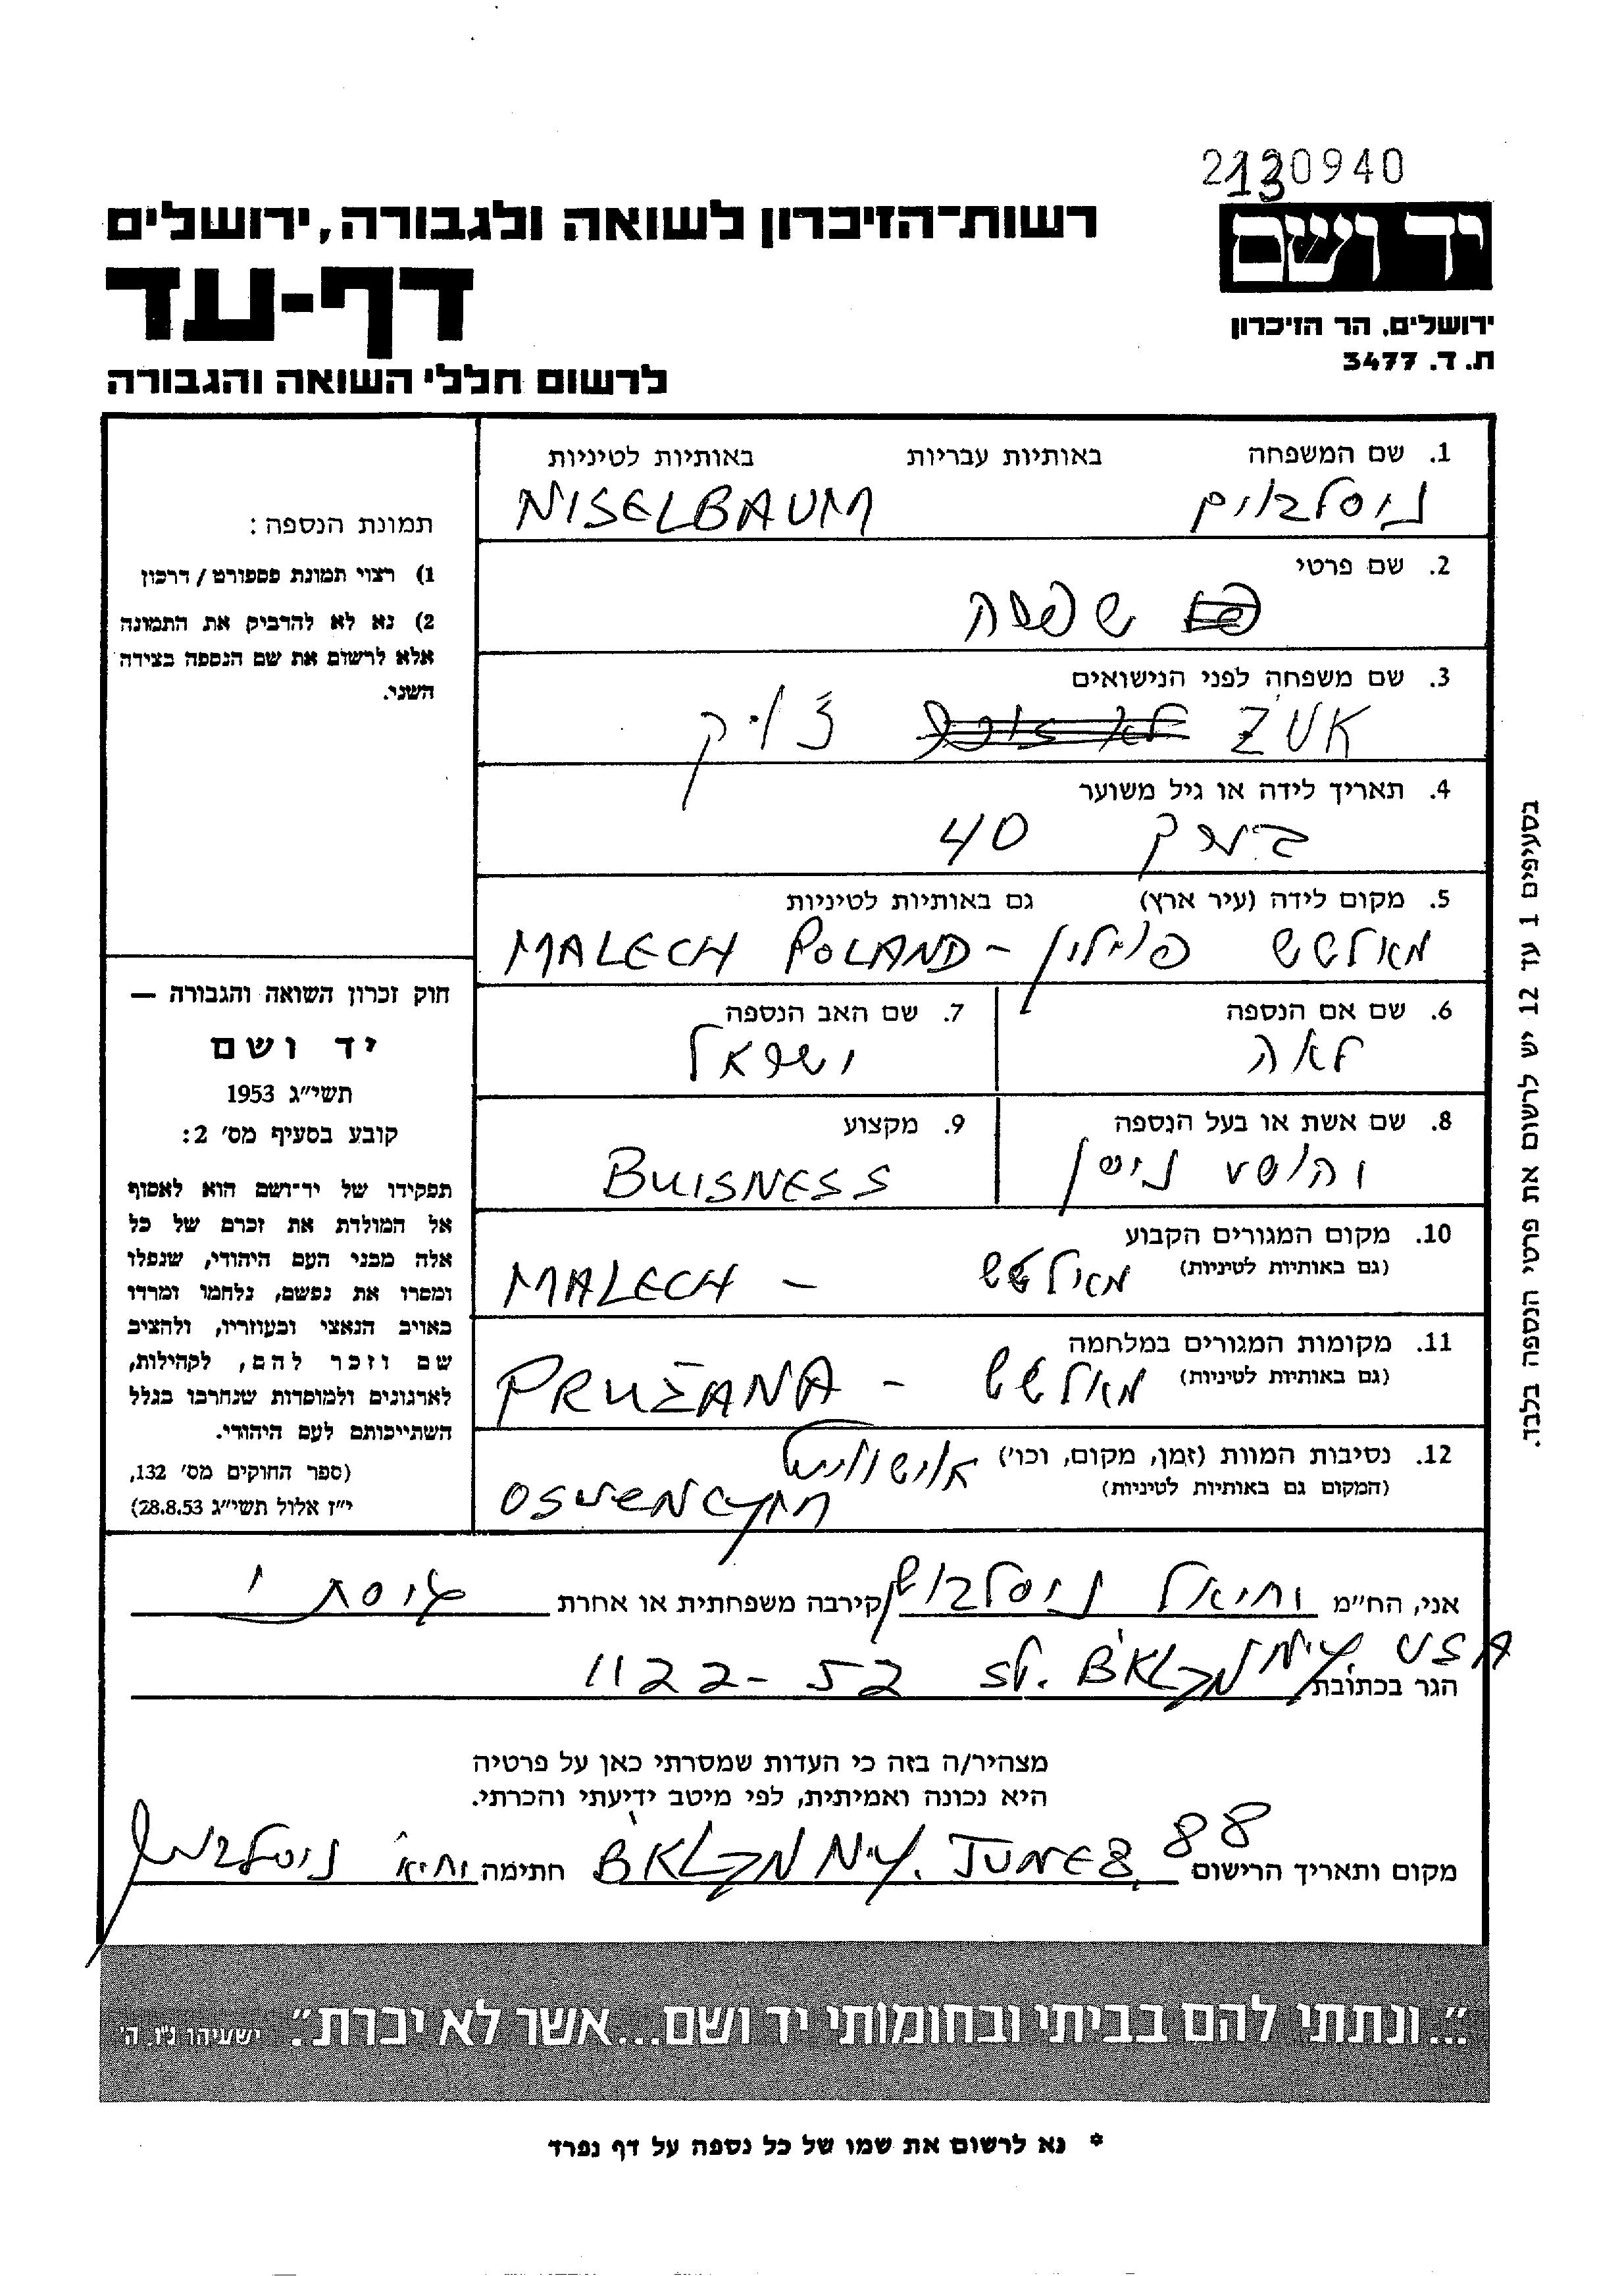 2130940
רשות-הזיכרון לשואה ולגבורה, ירושלים
יד ושם
דף-עד
ירושלים, הר הזיכרון
ת. ד. 3477
לרשום חללי השואה והגבורה
1. שם המשפחה באותיות עבריות באותיות לטיניות
ניסלבוים NISELBAUM
2. שם פרטי
3. שם משפחה לפני הנישואים
ZUK זוק
4. תאריך לידה או גיל משוער
40
5. מקום לידה (עיר ארץ) גם באותיות לטיניות
מאלטש פוילין - MALECH POLAND
6. שם אם הנספה
לאה
7. שם האב הנספה
ישראל
8. שם אשת או בעל הנספה
יהושע ניסן
9. מקצוע
BUISNESS
10. מקום המגורים הקבוע
(גם באותיות לטיניות)
מאלטש - MALECH
11. מקומות המגורים במלחמה
(גם באותיות לטיניות)
מאלטש - PRUZANA
12. נסיבות המוות (זמן, מקום, וכו')
(המקום גם באותיות לטיניות)
תמונת הנספה:
1) רצוי תמונת פספורט/דרכון
2) נא לא להדביק את התמונה
אלא לרשום את שם הנספה בצידה
השני.
חוק זכרון השואה והגבורה —
יד ושם
תשי"ג 1953
קובע בסעיף מס' 2:
תפקידו של יד-ושם הוא לאסוף
אל המולדת את זכרם של כל
אלה מבני העם היהודי, שנפלו
ומסרו את נפשם, נלחמו ומרדו
באויב הנאצי ובעוזריו, ולהציב
שם וזכר להם, לקהילות,
לארגונים ולמוסדות שנחרבו בגלל
השתייכותם לעם היהודי.
(ספר החוקים מס' 132,
י"ז אלול תשי"ג 28.8.53)
בסעיפים 1 עד 12 יש לרשום את פרטי הנספה בלבד.
אני, הח"מ יחיאל ניסלבוים קירבה משפחתית או אחרת
הגר בכתובת 1122-52 St. B'KLYN N.Y. USA
מצהיר/ה בזה כי העדות שמסרתי כאן על פרטיה
היא נכונה ואמיתית, לפי מיטב ידיעתי והכרתי.
מקום ותאריך הרישום B'KLYN N.Y. JUNE 8, 88 חתימה ניסלבוים
"...ונתתי להם בביתי ובחומותי יד ושם...אשר לא יכרת". ישעיהו נ"ו, ה'
* נא לרשום את שמו של כל נספה על דף נפרד